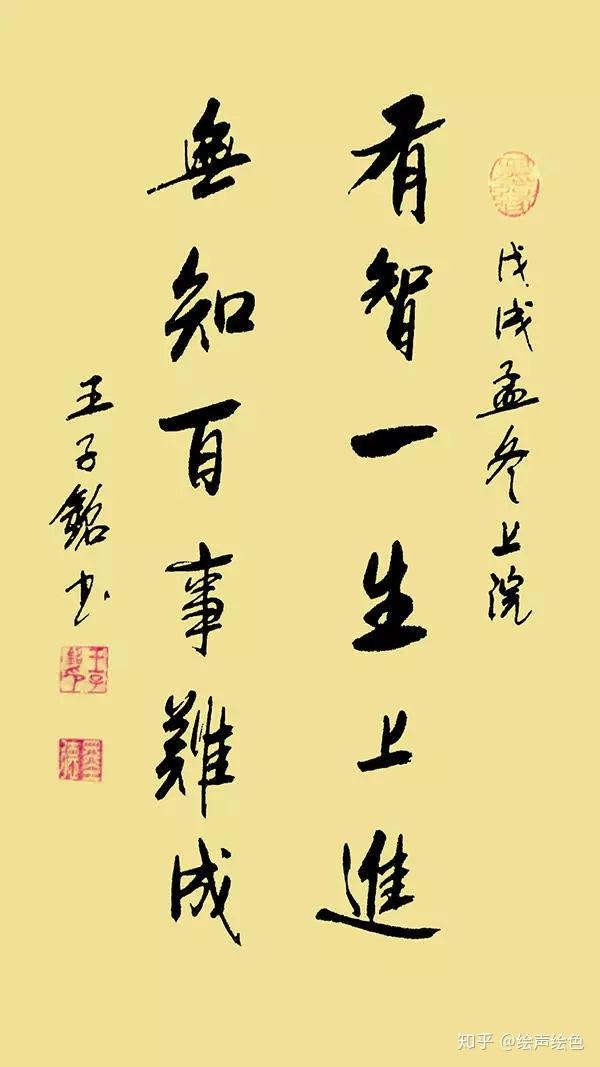 戊戌孟冬上浣
有智一生上進
無知百事難成
王子銘书
知乎 @绘声绘色